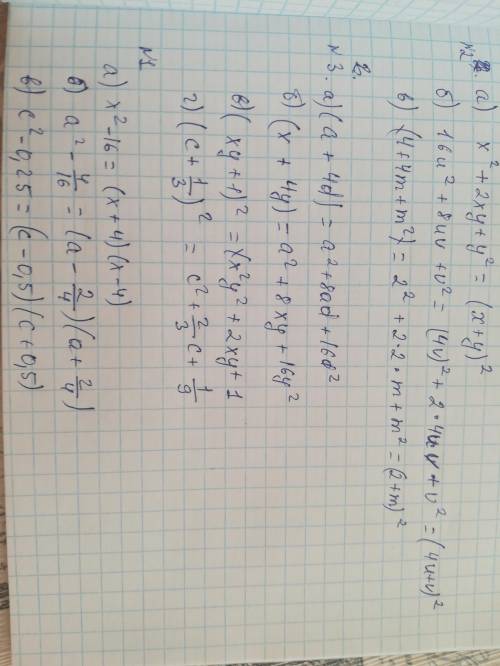 №2. а) x² + 2xy + y² = (x + y)²
б) 16u² + 8uv + v² = (4u)² + 2·4u·v + v² = (4u+v)²
в) (4+4m+m²) = 2² + 2·2·m + m² = (2+m)²
№3. а) (a + 4d) = a² + 8ad + 16d²
б) (x + 4y) = a² + 8xy + 16y²
в) (xy + 1)² = (x²y² + 2xy + 1
г) (c + 1/3)² = c² + 2/3 c + 1/9
№1
а) x² - 16 = (x + 4) (x - 4)
б) a² - 4/16 = (a - 2/4) (a + 2/4)
в) c² - 0,25 = (c - 0,5) (c + 0,5)